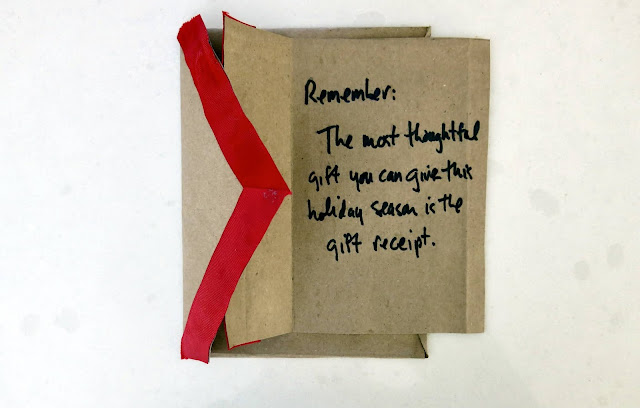 Remember:
The most thoughtful
gift you can give this
holiday season is the
gift receipt.